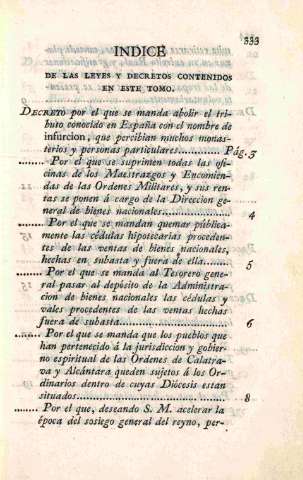 333
INDICE
DE LAS LEYES Y DECRETOS CONTENIDOS
EN ESTE TOMO.
DECRETO por el que se manda abolir el tri-
buto conocido en España con el nombre de
infurcion, que percibian muchos monas-
terios y personas particulares........... Pág. 3
........Por el que se suprimen todas las ofi-
cinas de los Maestrazgos y Encomien-
das de las Ordenes Militares, y sus ren-
tas se ponen á cargo de la Direccion ge-
neral de bienes nacionales................... 4
........Por el que se mandan quemar pública-
mente las cédulas hipotecarias proceden-
tes de las ventas de bienes nacionales,
hechas en subasta y fuera de ella........ 5
........Por el que se manda al Tesorero gene-
ral pasar al depósito de la Administra-
cion de bienes nacionales las cédulas y
vales procedentes de las ventas hechas
fuera de subasta............................ 6
........Por el que se manda que los pueblos que
han pertenecido á la jurisdiccion y gobier-
no espiritual de las Ordenes de Calatra-
va y Alcántara queden sujetos á los Or-
dinarios dentro de cuyas Diócesis estan
situados...................................... 8
........Por el que, deseando S. M. acelerar la
época del sosiego general del reyno, per-